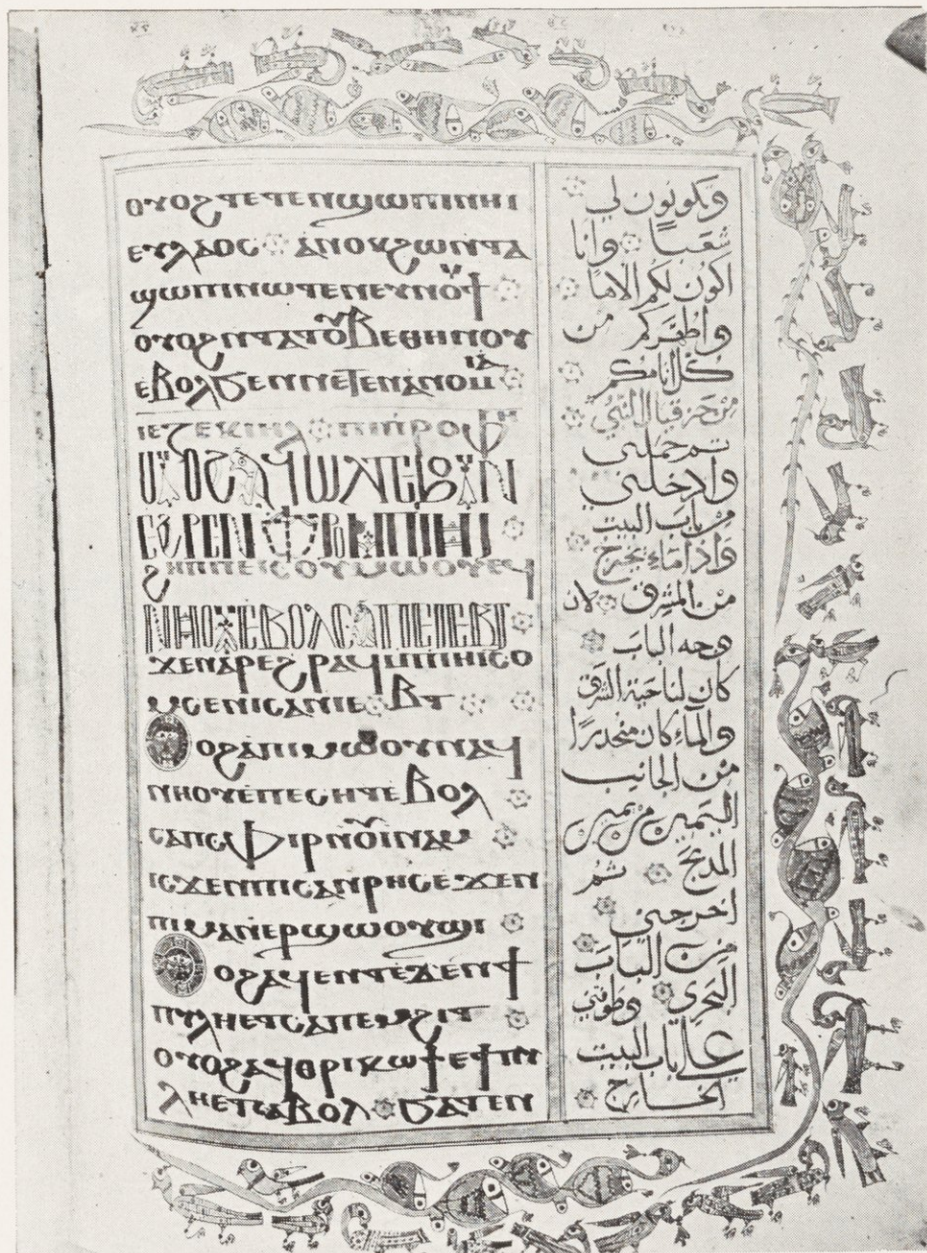 ⲟⲩⲟϩ ⲧⲉⲧⲉⲛϣⲱⲡⲓ ⲛⲏⲓ
ⲉⲩⲗⲁⲟⲥ ⲁⲛⲟⲕ ϩⲱ ⲛⲧⲁ
ϣⲱⲡⲓ ⲛⲱⲧⲉⲛ ⲉⲩⲛⲟⲩϯ
ⲟⲩⲟϩ ⲛⲧⲁⲧⲟⲩⲃⲉ ⲑⲏⲛⲟⲩ
ⲉⲃⲟⲗϧⲉⲛ ⲛⲉⲧⲉⲛⲁⲛⲟⲙⲓⲁ
ⲓⲉⲍⲉⲕⲓⲏⲗ ⲡⲓⲡⲣⲟⲫⲏ
ⲟⲩⲟϩ ⲁϥⲱⲗ
ⲉϩⲣⲉⲛ ⲫⲣⲟ ⲙⲡⲓⲏⲓ
ϩⲏⲡⲡⲉ ⲓⲥ ⲟⲩⲙⲱⲟⲩ ⲉϥ
ⲛⲏⲟⲩ ⲉⲃⲟⲗ ⲥⲁ ⲡⲉⲓⲉⲃⲧ
ϫⲉ ⲛⲁⲣⲉ ϩⲣⲁϥ ⲙⲡⲓⲏⲓ ⲥⲟ
ⲙⲥ ⲉⲛⲓⲥⲁⲛⲓⲉⲃⲧ
ⲟϩ ⲁⲡⲓⲙⲱⲟⲩ ⲛⲁϥ
ⲛⲏⲟⲩ ⲉⲡⲉⲥⲏⲧ ⲉⲃⲟⲗ
ⲥⲁ ⲡⲥⲫⲓⲣ ⲛⲟⲩⲓⲛⲁⲙ
ⲓⲥϫⲉⲛ ⲡⲓⲥⲁⲙⲣⲏⲥ ⲉϫⲉⲛ
ⲡⲓⲙⲁⲛⲉⲣϣⲱⲟⲩϣⲓ
ⲟϩ ⲁϥⲉⲛⲧ ⲉϫⲉⲛ ϯ
ⲡⲩⲗⲏ ⲉⲧⲥⲁⲡⲉⲙϩⲓⲧ
ⲟⲩⲟϩ ⲁϥⲑⲣⲓⲕⲱϯ ⲉϯⲡⲩ
ⲗⲏ ⲉⲧⲥⲁⲃⲟⲗ ϧⲁⲧⲉⲛ
وتكونون لي
شعبا وانا
اكون لكم الاها
واطهركم من
كل اثامكم
من حزقيال النبي
ثم حملني
وادخلني
من باب البيت
واذا ماء يخرج
من المشرق لان
وجه الباب
كان لناحية الشرق
والماء كان منحدرا
من الجانب
اليمين من يمين
المذبح ثم
اخرجني
من الباب
البحري وطوفني
على باب البيت
الخارج